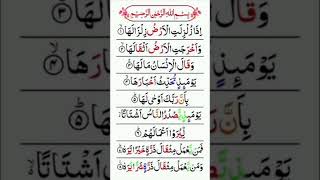 بِسْمِ اللهِ الرَّحْمٰنِ الرَّحِيْمِ
اِذَا زُلْزِلَتِ الْاَرْضُ زِلْزَالَهَا ۙ
وَاَخْرَجَتِ الْاَرْضُ اَثْقَالَهَا ۙ
وَقَالَ الْاِنْسَانُ مَا لَهَا ۚ
يَوْمَئِذٍ تُحَدِّثُ اَخْبَارَهَا ۙ
بِاَنَّ رَبَّكَ اَوْحٰى لَهَا ؕ
يَوْمَئِذٍ يَّصْدُرُ النَّاسُ اَشْتَاتًا ۙ
لِّيُرَوْا اَعْمَالَهُمْ ؕ
فَمَنْ يَّعْمَلْ مِثْقَالَ ذَرَّةٍ خَيْرًا يَّرَهٗ ؕ
وَمَنْ يَّعْمَلْ مِثْقَالَ ذَرَّةٍ شَرًّا يَّرَهٗ